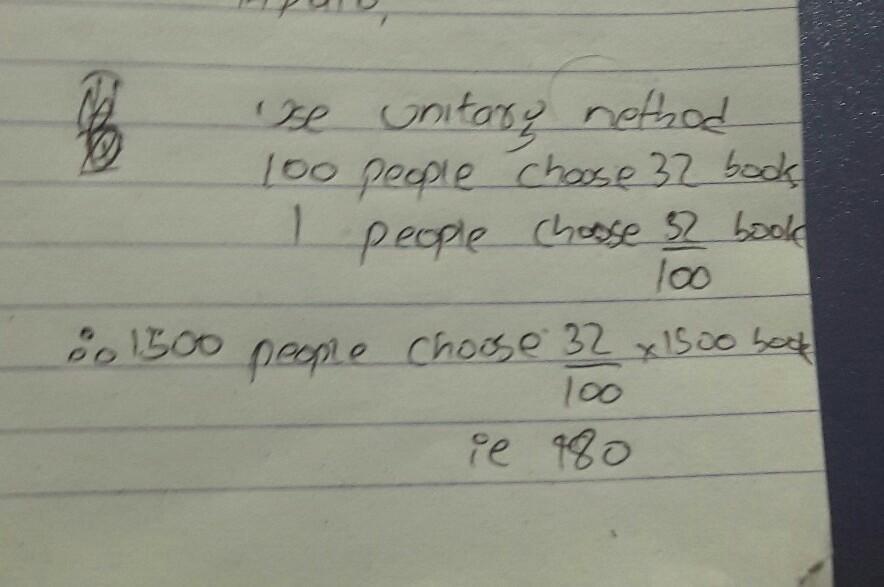 Use unitary method
100 people choose 32 book
1 people choose 32/100 book
∴ 1500 people choose 32/100 × 1500 book
ie 480